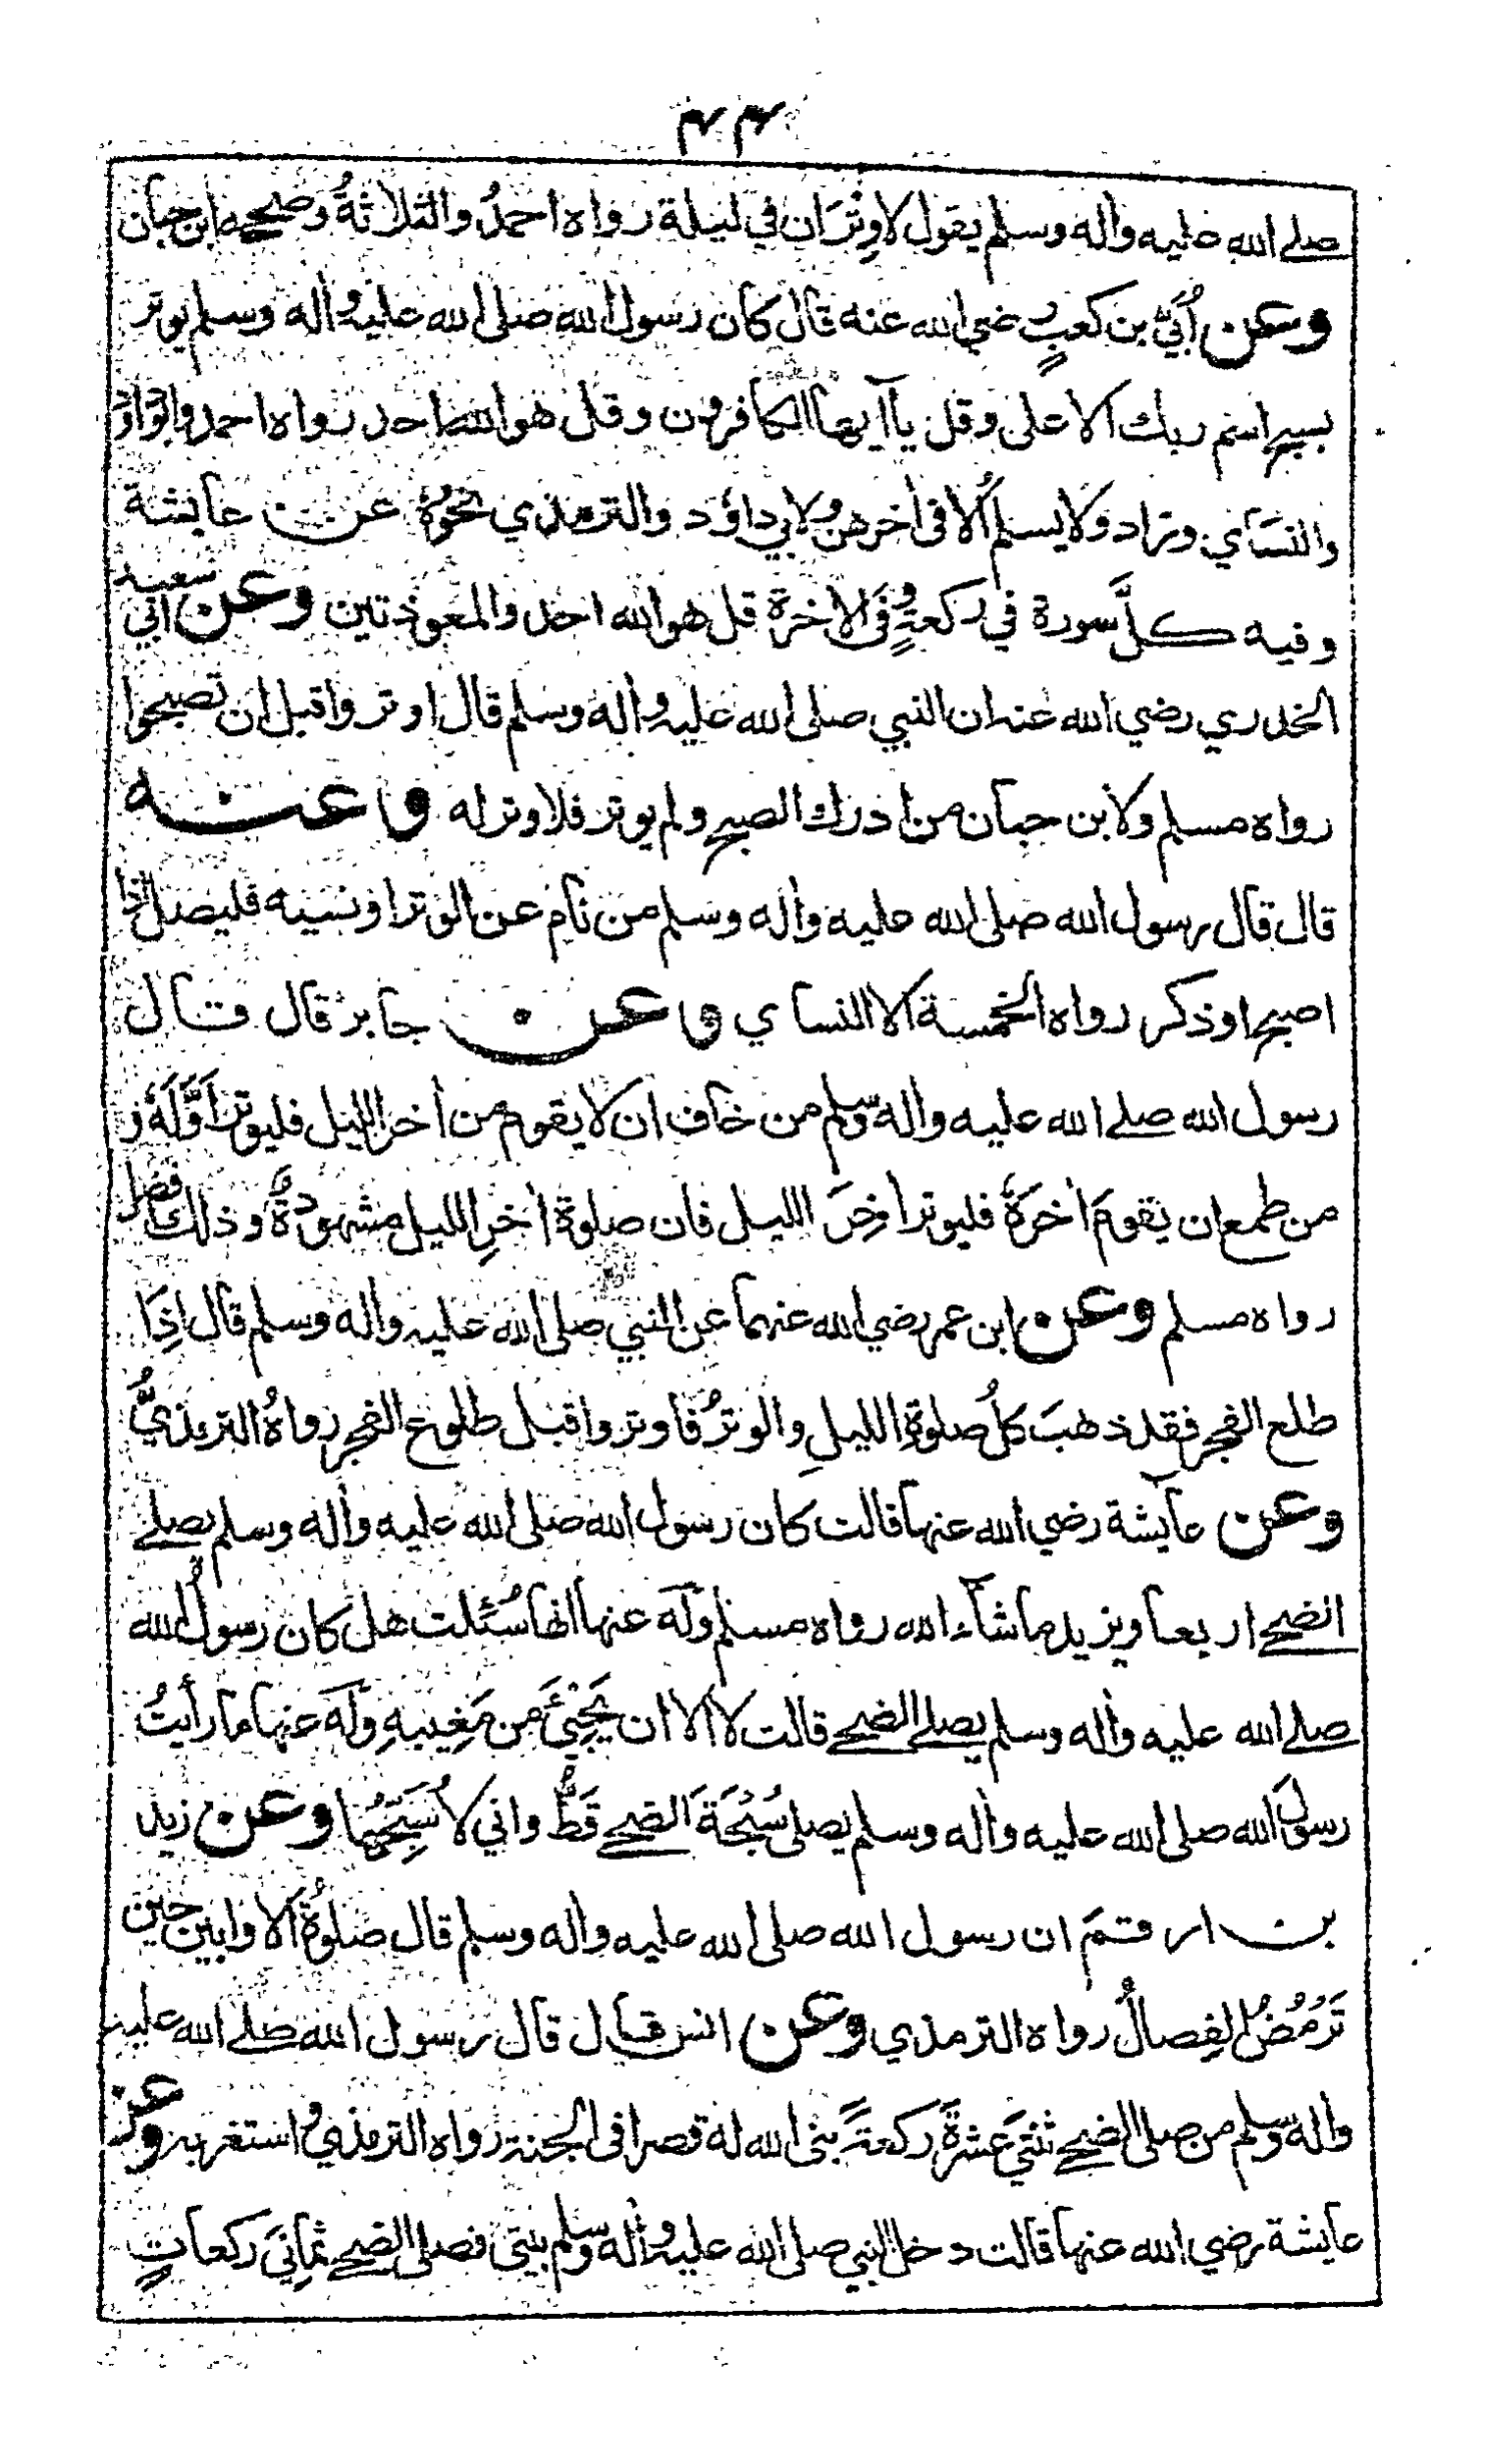 ٤٤
صلے الله عليه واٰله وسلم يقول لا وِتْرَان في ليلة رواه احمدُ والثلاثةُ وصححه ابن حبان
وعن اُبَيِّ بن كعبٍ رضي الله عنه قال كان رسول الله صلى الله عليه واٰله وسلم يوتر
بسبح اسم ربك الاعلى وقل يآ ايها الكافرون وقل هو الله احد رواه احمد وابو داؤد
والنسَاي وزاد ولا يسلم اُلا فى اٰخرهن ولابي داؤد والترمذي نحوُهٗ عن عايشة
وفيه كلَّ سورة في ركعةٍ وفى الاخرة قل هو الله احد والمعوذتين وعن ابي سعيد
الخدري رضي الله عنه ان النبي صلى الله عليه واٰله وسلم قال اوتروا قبل ان تصبحوا
رواه مسلم ولابن حبان من ادرك الصبح ولم يوتر فلا وتر له وعنه
قال قال رسول الله صلى الله عليه واٰله وسلم من نام عن الوتر او نسيه فليصل اذا
اصبح او ذكر رواه الخمسة الا النساي وعن جابر قال قال
رسول الله صلے الله عليه واٰله وسلم من خاف ان لا يقوم من اٰخر الليل فليوتر اَوَّلَهٗ و
من طمع ان يقومَ اٰخرَهٗ فليوتر اٰخِرَ الليل فان صلوة اٰخرِ الليل مشهودةٌ وذلك افضل
رواه مسلم وعن ابن عمر رضي الله عنهما عن النبي صلى الله عليه واٰله وسلم قال اِذَا
طلع الفجر فقد ذهبَ كلُ صلوةِ الليلِ والوترُ فاوتروا قبل طلوع الفجر رواهُ الترمذيُّ
وعن عآيشة رضي الله عنها قالت كان رسول الله صلى الله عليه واٰله وسلم يصلے
الضحے اربعا ويزيد ما شآء الله رواه مسلم ولَهٗ عنها انها سُئلت هل كان رسولُ الله
صلے الله عليه واٰله وسلم يصلے الضحے قالت لا الا ان يَجِيْئَ من مَغِيبِهٖ ولَهٗ عنها ما رأيتُ
رسولَ الله صلى الله عليه واٰله وسلم يصلى سُبْحَةَ الضحے قَطُّ واني لاُسَبِّحُهَا وعن زيد
بن ارقمَ ان رسول الله صلى الله عليه واٰله وسلم قال صلوةُ الاوابين حين
تَرمُضُ الفِصالُ رواه الترمذي وعن انس قال قال رسول الله صلے الله عليه
واٰله وسلم من صلى الضحے ثنتَي عشرةَ ركعةً بنى الله له قصرا فى الجنة رواه الترمذي واستغربه وعن
عايشة رضي الله عنها قالت دخل النبي صلى الله عليه واٰله وسلم بيتى فصلى الضحے ثمانيَ ركعاتٍ